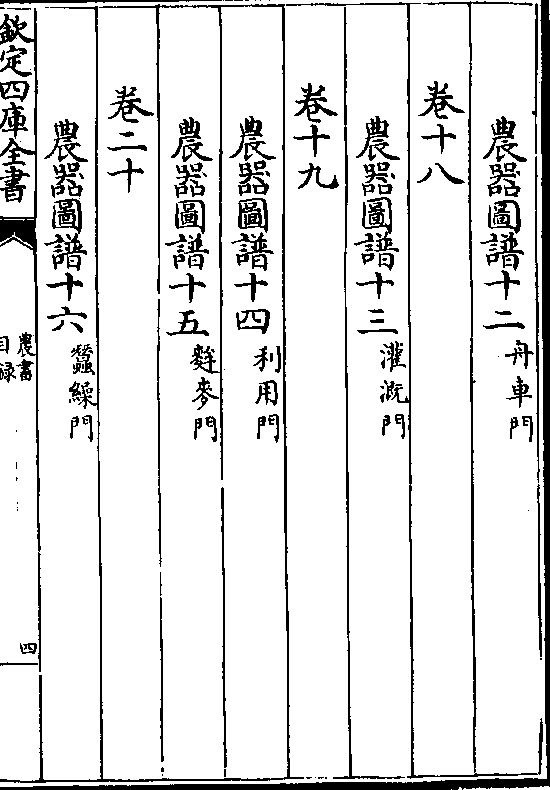 農器圖譜十二 舟車門
卷十八
農器圖譜十三 灌溉門
卷十九
農器圖譜十四 利用門
農器圖譜十五 麰麥門
卷二十
農器圖譜十六 蠶繅門
欽定四庫全書
農書
目録
四